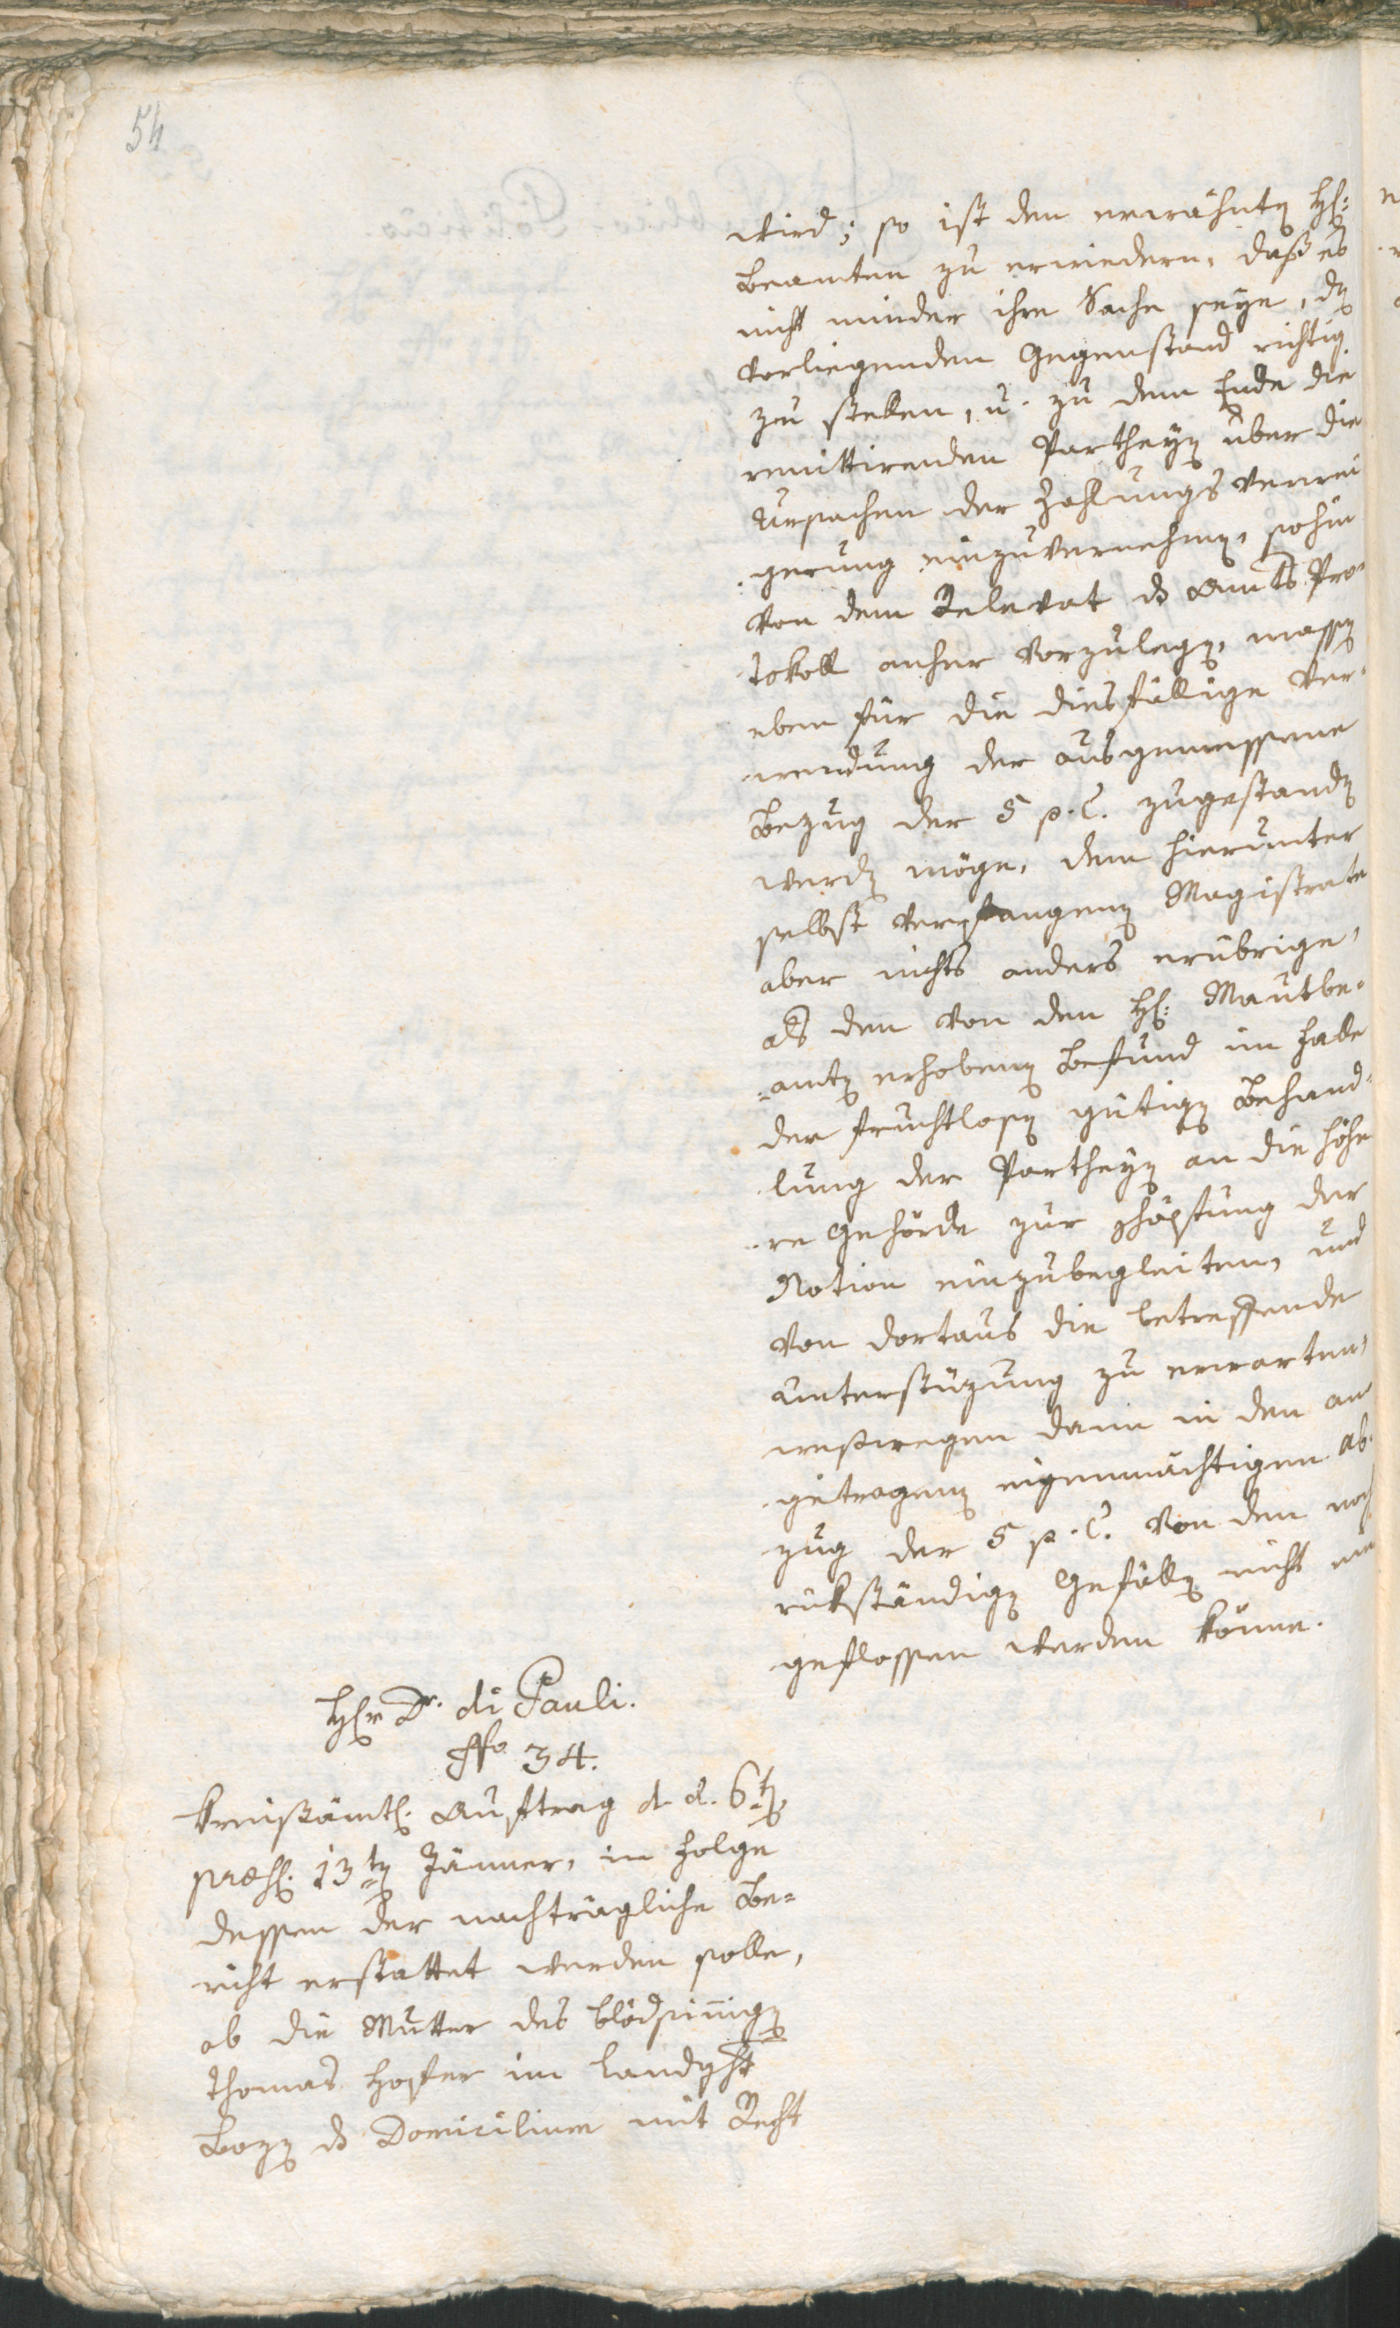 54
wird; so ist den erwähnten H:
Beamten zu erwiedern, daß es
nicht minder ihre Sache seye, den
vorliegenden Gegenstand richtig
zu stellen, u. zu dem Ende die
remittirenden Partheyen über die
Ursachen der Zahlungs Verwei
gerung einzuvernehmen, sohin
von dem Relevat das Amts Pro-
tokoll anher vorzulegen, massen
eben für die diesfällige Ver-
wendung der ausgemessene
Bezug der 5 p. C. zugestanden
werden möge, dem hierunter
selbst verfangenen Magistrate
aber nichts anders erübrige,
als den von den H: Mautbe-
amten erhobenen Befund im Falle
der fruchtlosen gütigen Behand-
lung der Partheyen an die höhe
re Gehörde zur Schöpfung der
Notion einzubegleiten, und
von dortaus die betreffende
Unterstüzung zu erwarten,
weßwegen dann in den an
getragenen eigenmächtigen Ab-
zug der 5 p. C. von den noch
rükständigen Gefällen nicht ein
geflossen werden könne.
Herr Dr. di Pauli.
No 34.
Kreisämtl. Auftrag d. d. 6ten
præs. 13ten Jänner, in Folge
dessen der nachträgliche Be-
richt erstattet werden solle,
ob die Mutter des blödsinnigen
Thomas Hofer im Landgcht
Bozen das Domicilium mit Recht